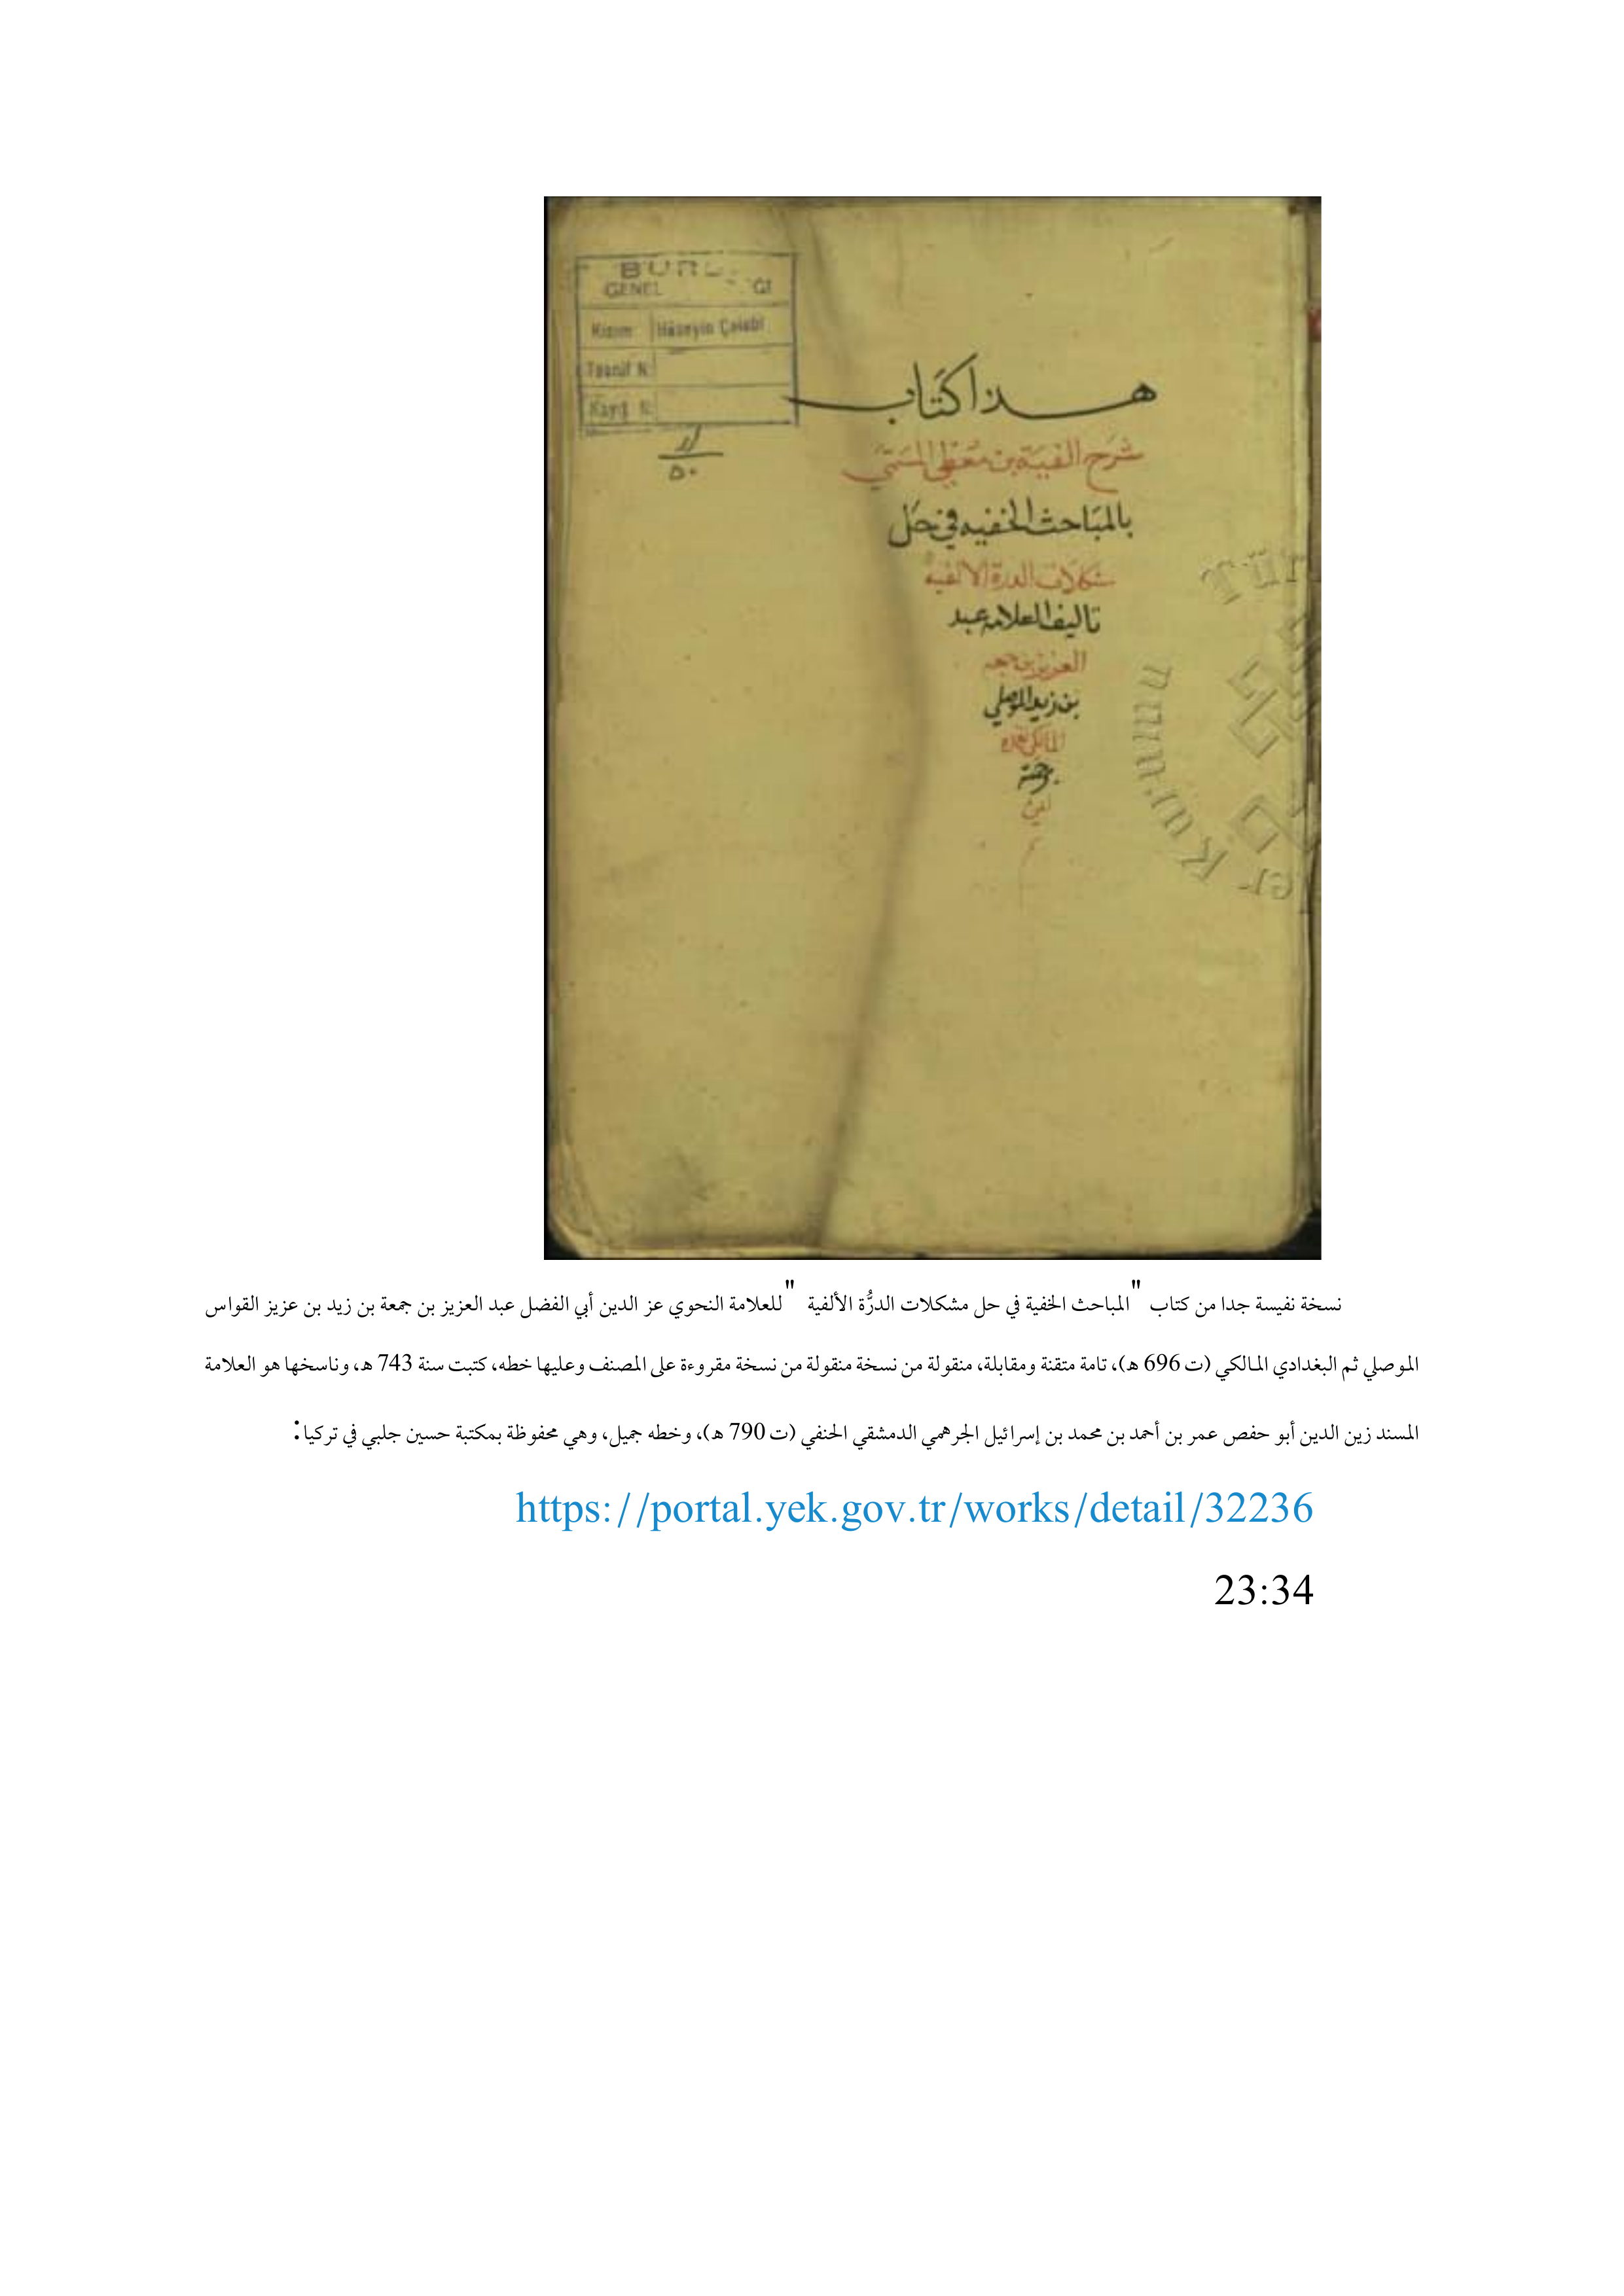 GENEL
Kısım Hüseyin Çelebi
Tasnif N:
Kayıt N:
٥٠
هذا كتاب
شرح الفية بن معطي المسمى
بالمباحث الخفيه في حل
مشكلات الدرة الالفيه
تاليف العلامه عبد
العزيز بن جمعه
بن زيد الموصلي
المالكي
برحمته
امين
نسخة نفيسة جدا من كتاب "المباحث الخفية في حل مشكلات الدرُّة الألفية "للعلامة النحوي عز الدين أبي الفضل عبد العزيز بن جمعة بن زيد بن عزيز القواس
الموصلي ثم البغدادي المالكي (ت 696 هـ)، تامة متقنة ومقابلة، منقولة من نسخة منقولة من نسخة مقروءة على المصنف وعليها خطه، كتبت سنة 743 هـ، وناسخها هو العلامة
المسند زين الدين أبو حفص عمر بن أحمد بن محمد بن إسرائيل الجرهمي الدمشقي الحنفي (ت 790 هـ)، وخطه جميل، وهي محفوظة بمكتبة حسين جلبي في تركيا:
https://portal.yek.gov.tr/works/detail/32236
23:34